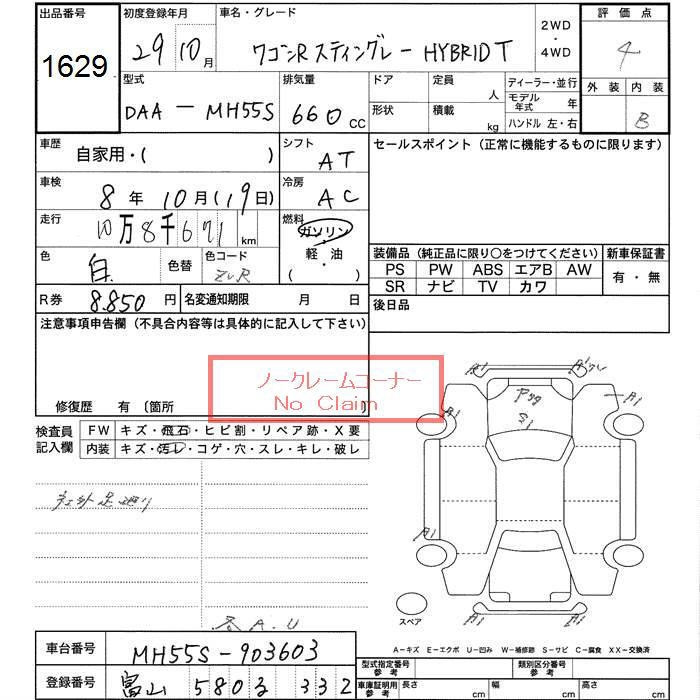 出品番号 1629
初度登録年月 29 10月
車名・グレード ワゴンR スティングレー HYBRID T
2WD ・ 4WD
評価点 4
外装 内装 B
型式 DAA - MH55S
排気量 660 CC
ドア 定員 人
形状 積載 kg
ディーラー・並行
モデル年式 年
ハンドル 左・右
車歴 自家用・( )
シフト AT
セールスポイント(正常に機能するものに限ります)
車検 8年 10月(19日)
冷房 AC
走行 10万8千671 km
燃料 ガソリン ・ 軽油 ( )
色 白 色替 色コード ZVR
装備品(純正品に限り○をつけてください) 新車保証書
PS PW ABS エアB AW 有・無
SR ナビ TV カワ
R券 8.850 円 名変通知期限 月 日
後日品
注意事項申告欄(不具合内容等は具体的に記入して下さい)
ノークレームコーナー
No Claim
修復歴 有 〔箇所 〕
検査員記入欄 FW キズ・飛石・ヒビ割・リペア跡・X要
内装 キズ・汚レ・コゲ・穴・スレ・キレ・破レ
A1
A1
A1
A1
S1
A1
A1
スペア
各 A.U
A-キズ E-エクボ U-凹み W-補修跡 S-サビ C-腐食 XX-交換済
車台番号 MH55S-903603
型式指定番号 参考 類別区分番号 参考
登録番号 富山 580 332
車庫証明用 参考 長さ cm 幅 cm 高さ cm